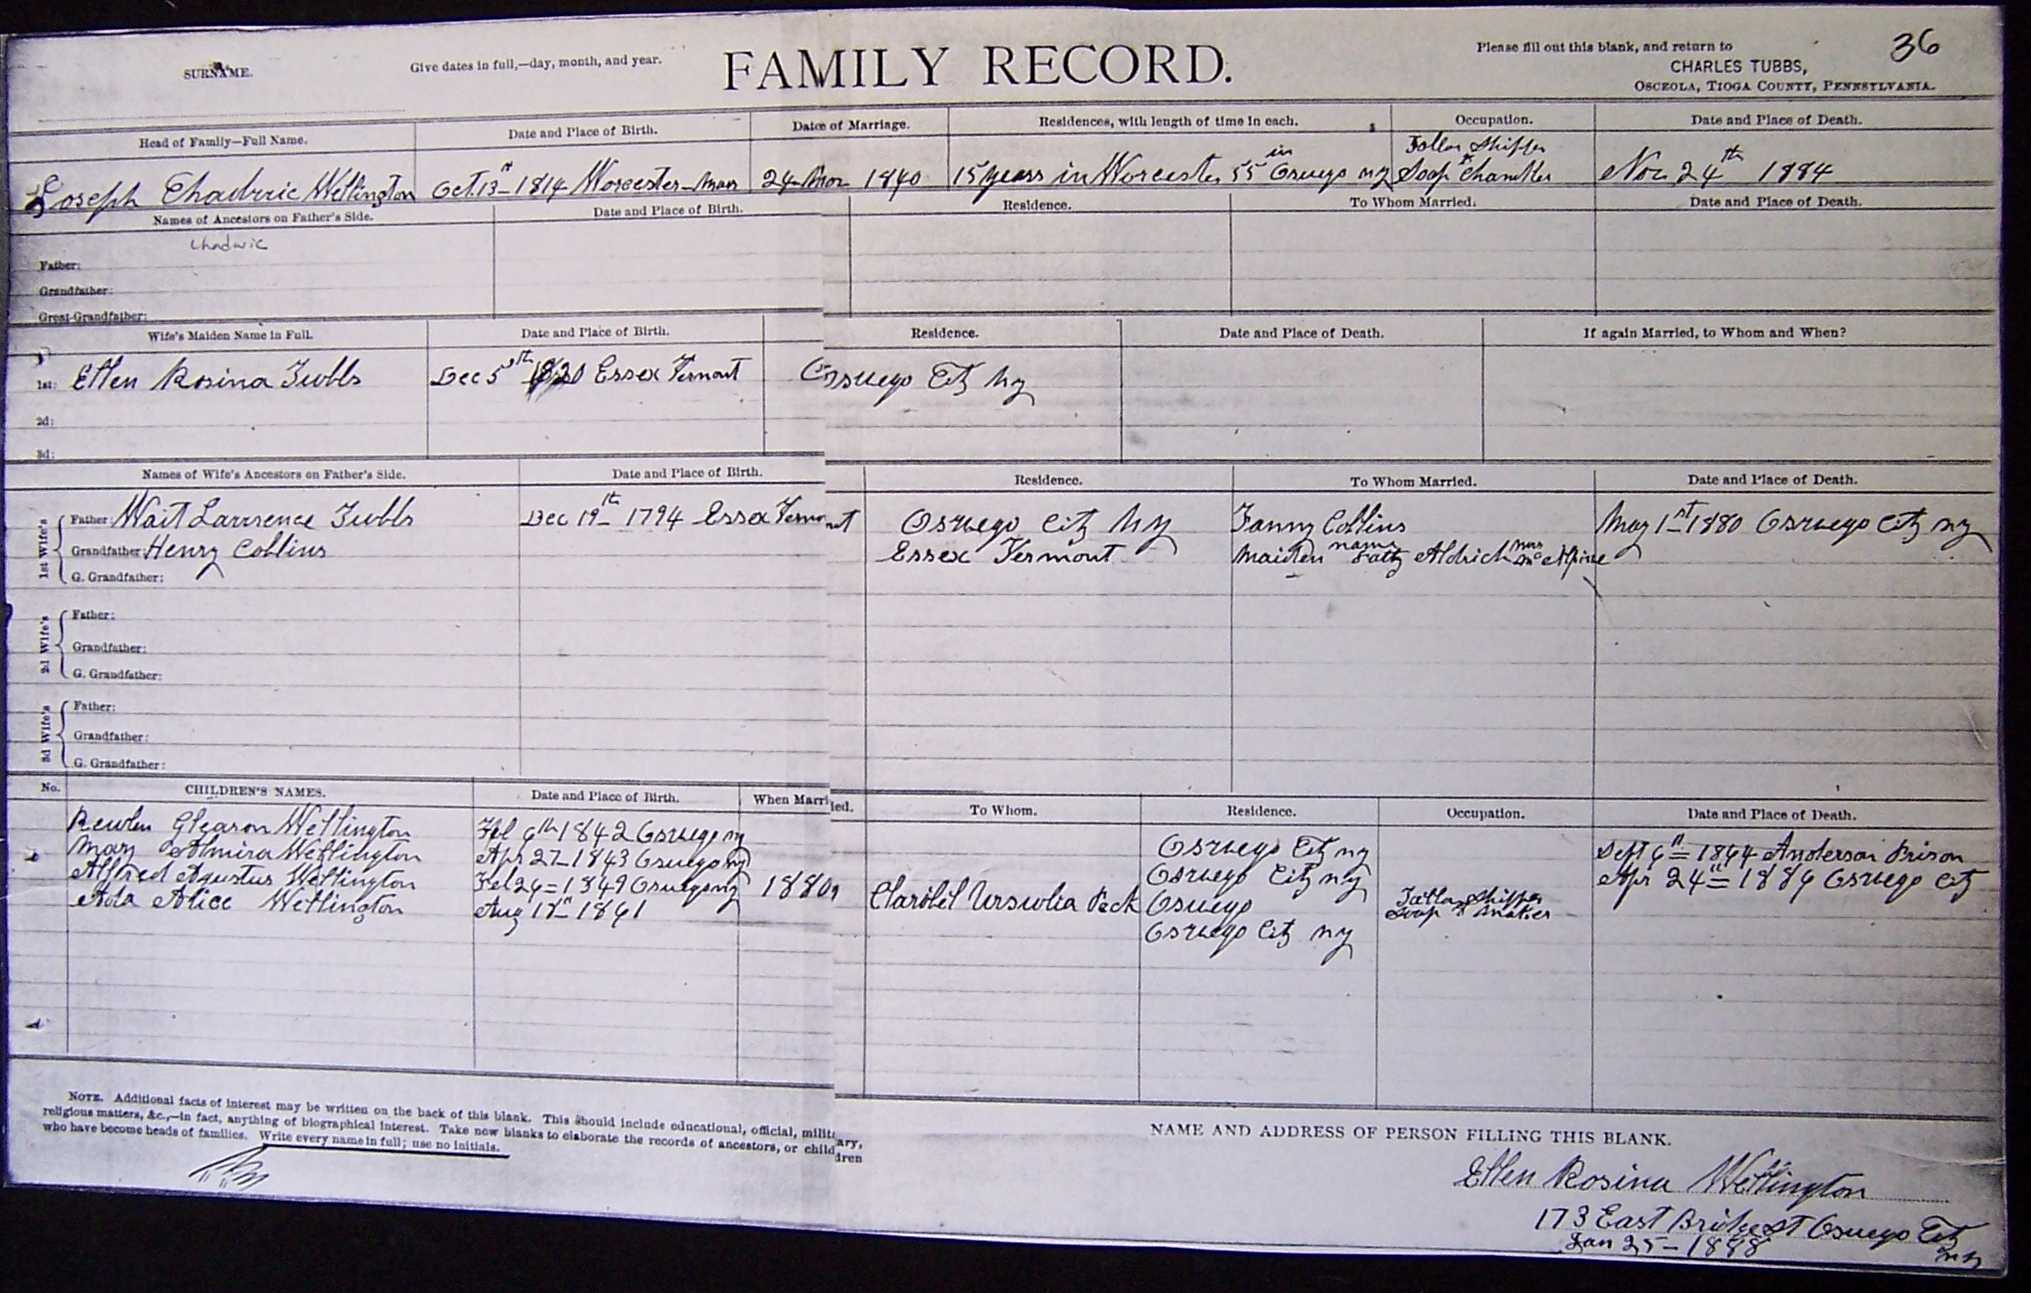 36
SURNAME.
Give dates in full,—day, month, and year.
FAMILY RECORD.
Please fill out this blank, and return to
CHARLES TUBBS,
OSCEOLA, TIOGA COUNTY, PENNSYLVANIA.
Head of Family—Full Name. Date and Place of Birth. Date of Marriage. Residences, with length of time in each. Occupation. Date and Place of Death.
Joseph Chadwic Wellington Oct. 13 1814 Worcester Mass 24 Nov 1840 15 years in Worcester 55 in Oswego NY Soap Chandler Nov 24th 1884
Names of Ancestors on Father's Side. Date and Place of Birth. Residence. To Whom Married. Date and Place of Death.
Chadwic
Father:
Grandfather:
Great-Grandfather:
Wife's Maiden Name in Full. Date and Place of Birth. Residence. Date and Place of Death. If again Married, to Whom and When?
1st: Ellen Rosina Tubbs Dec 5th 1820 Essex Vermont Oswego City NY
2d:
3d:
Names of Wife's Ancestors on Father's Side. Date and Place of Birth. Residence. To Whom Married. Date and Place of Death.
1st Wife's
Father: Wait Lawrence Tubbs Dec 19th 1794 Essex Vermont Oswego City NY Fanny Collins May 1st 1880 Oswego City NY
Grandfather: Henry Collins Essex Vermont Maiden name Aldrich Mrs
G. Grandfather:
2d Wife's
Father:
Grandfather:
G. Grandfather:
3d Wife's
Father:
Grandfather:
G. Grandfather:
No. CHILDREN'S NAMES. Date and Place of Birth. When Married. To Whom. Residence. Occupation. Date and Place of Death.
Reuben Gleason Wellington Feb 6th 1842 Oswego NY Oswego City NY Sept 6th 1864 Anderson Prison
Mary Almira Wellington Apr 27 1843 Oswego NY Oswego City NY Apr 24th 1886 Oswego City
Alfred Agustus Wellington 1849 Oswego NY 1880 Claribil Ursulia Peck Oswego Soap Maker
Ada Alice Wellington Aug 18th 1861 Oswego City NY
NOTE. Additional facts of interest may be written on the back of this blank. This should include educational, official, military,
religious matters, &c.,—in fact, anything of biographical interest. Take new blanks to elaborate the records of ancestors, or children
who have become heads of families. Write every name in full; use no initials.
NAME AND ADDRESS OF PERSON FILLING THIS BLANK.
Ellen Rosina Wellington
173 East Bridge St Oswego City
NY
Jan 25 - 1888